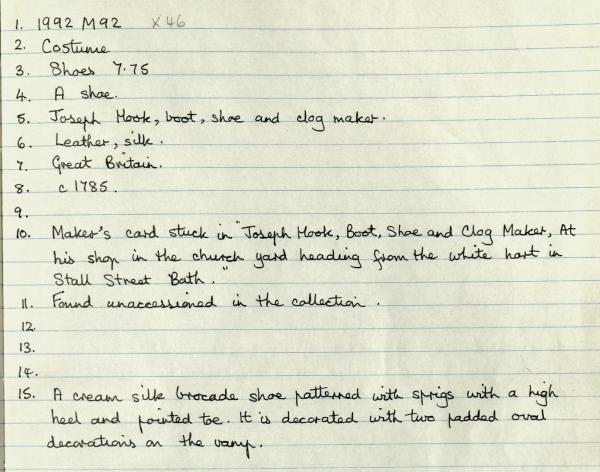 1. 1992 M92 X46
2. Costume
3. Shoes 7.75
4. A shoe.
5. Joseph Hook, boot, shoe and clog maker.
6. Leather, silk.
7. Great Britain.
8. c 1785.
9.
10. Maker's card stuck in "Joseph Hook, Boot, Shoe and Clog Maker, At
his shop in the church yard heading from the white hart in
Stall Street Bath."
11. Found unaccessioned in the collection.
12.
13.
14.
15. A cream silk brocade shoe patterned with sprigs with a high
heel and pointed toe. It is decorated with two padded oval
decorations on the vamp.